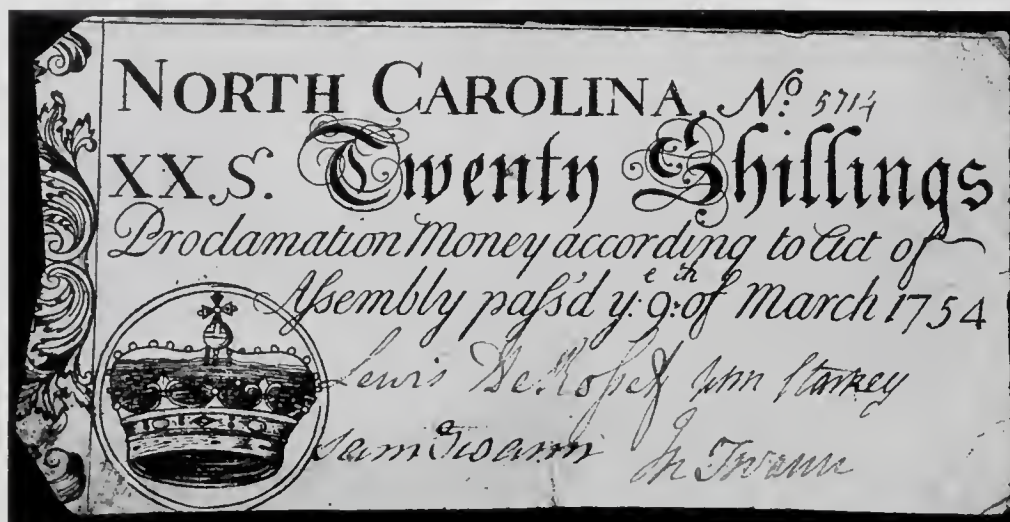 NORTH CAROLINA, No. 5714
XX.S. Twenty Shillings
Proclamation Money according to Act of
Assembly paſs'd ye. 9th. of March 1754
Lewis DeRoſset Jno Starkey
Sam Swann Jn Swann